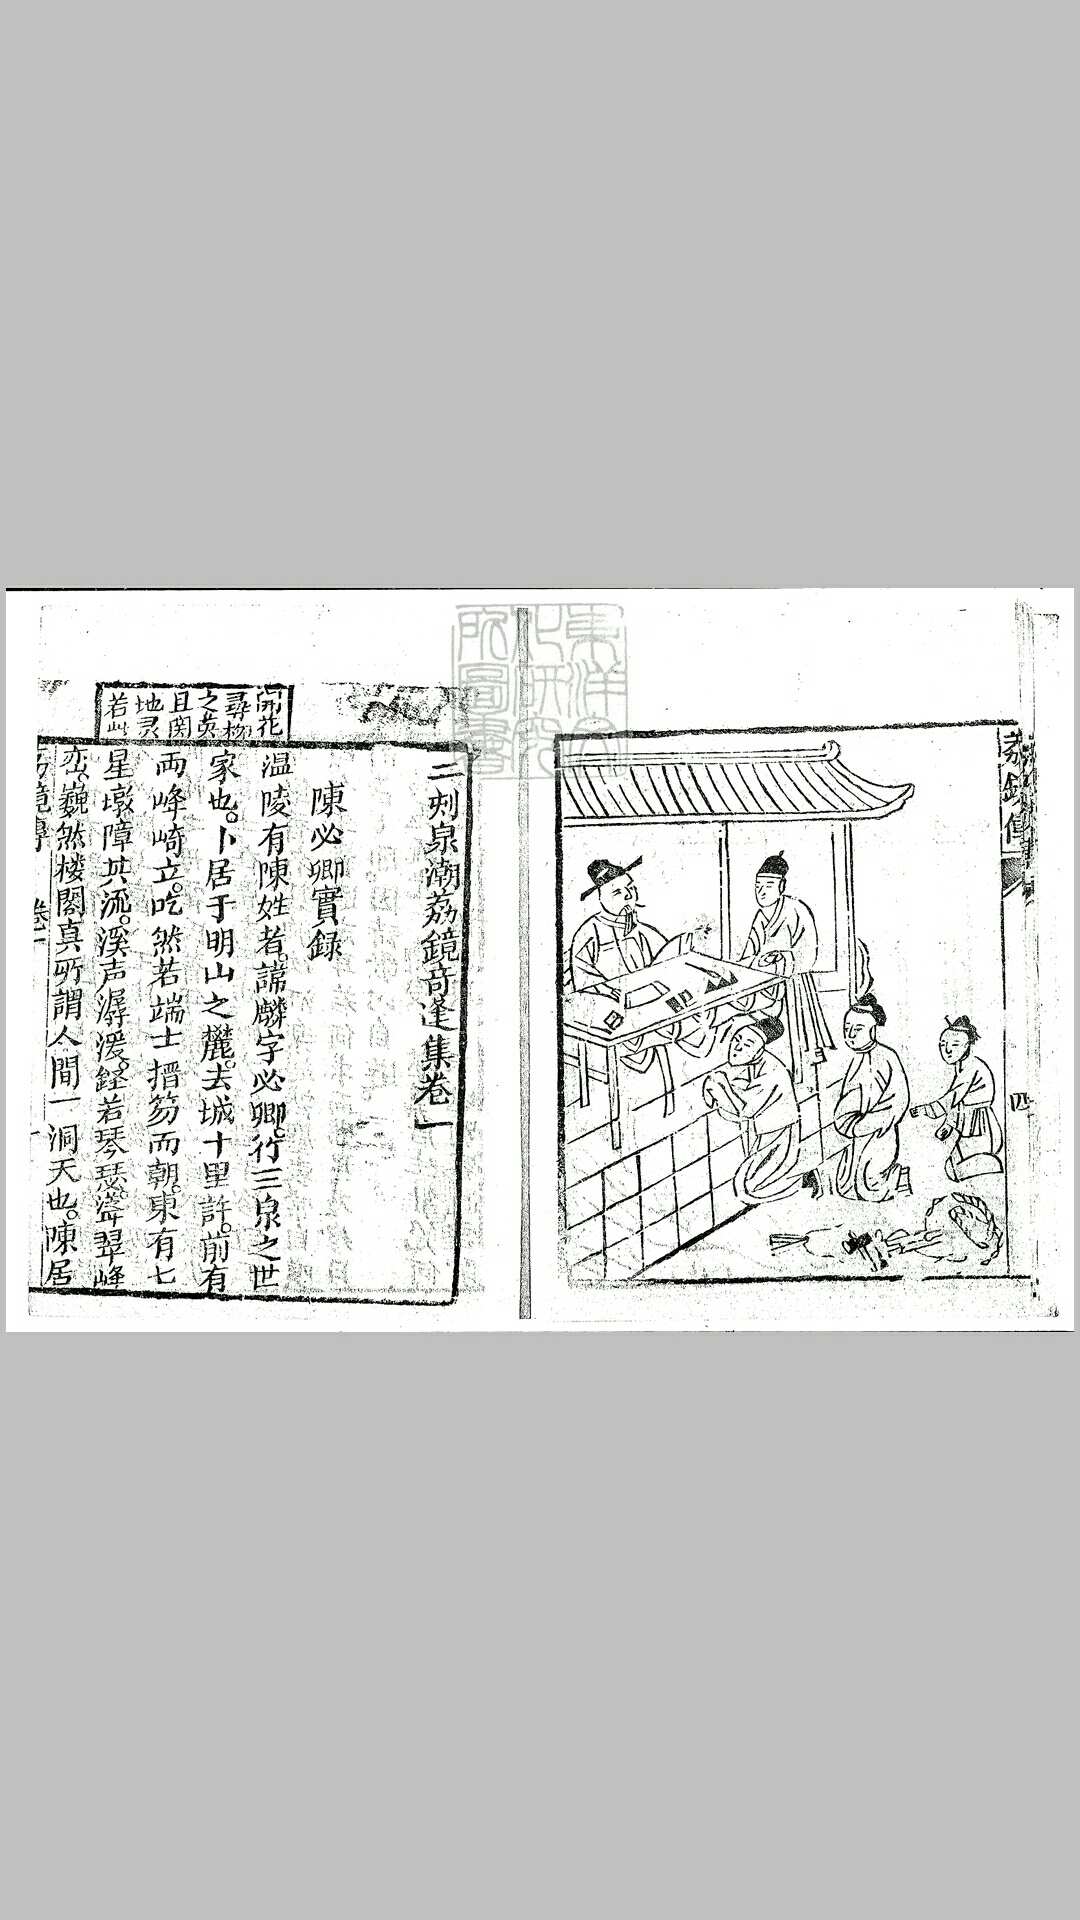 荔鏡傳
四
二刻泉潮荔鏡奇逢集卷一
陳必卿實録
開花
尋物
之英
且関
地灵
若此
温陵有陳姓者。諱麟字必卿。行三泉之世
家也。卜居于明山之麓。去城十里許。前有
両峰崎立。屹然若端士搢笏而朝。東有七
星墩障其流。溪声潺湲。鏗若琴瑟。聳翠峰
巒。巍然楼閣真所謂人間一洞天也。陳居
荔鏡傳
卷一
一
東洋文
化研究
所圖書